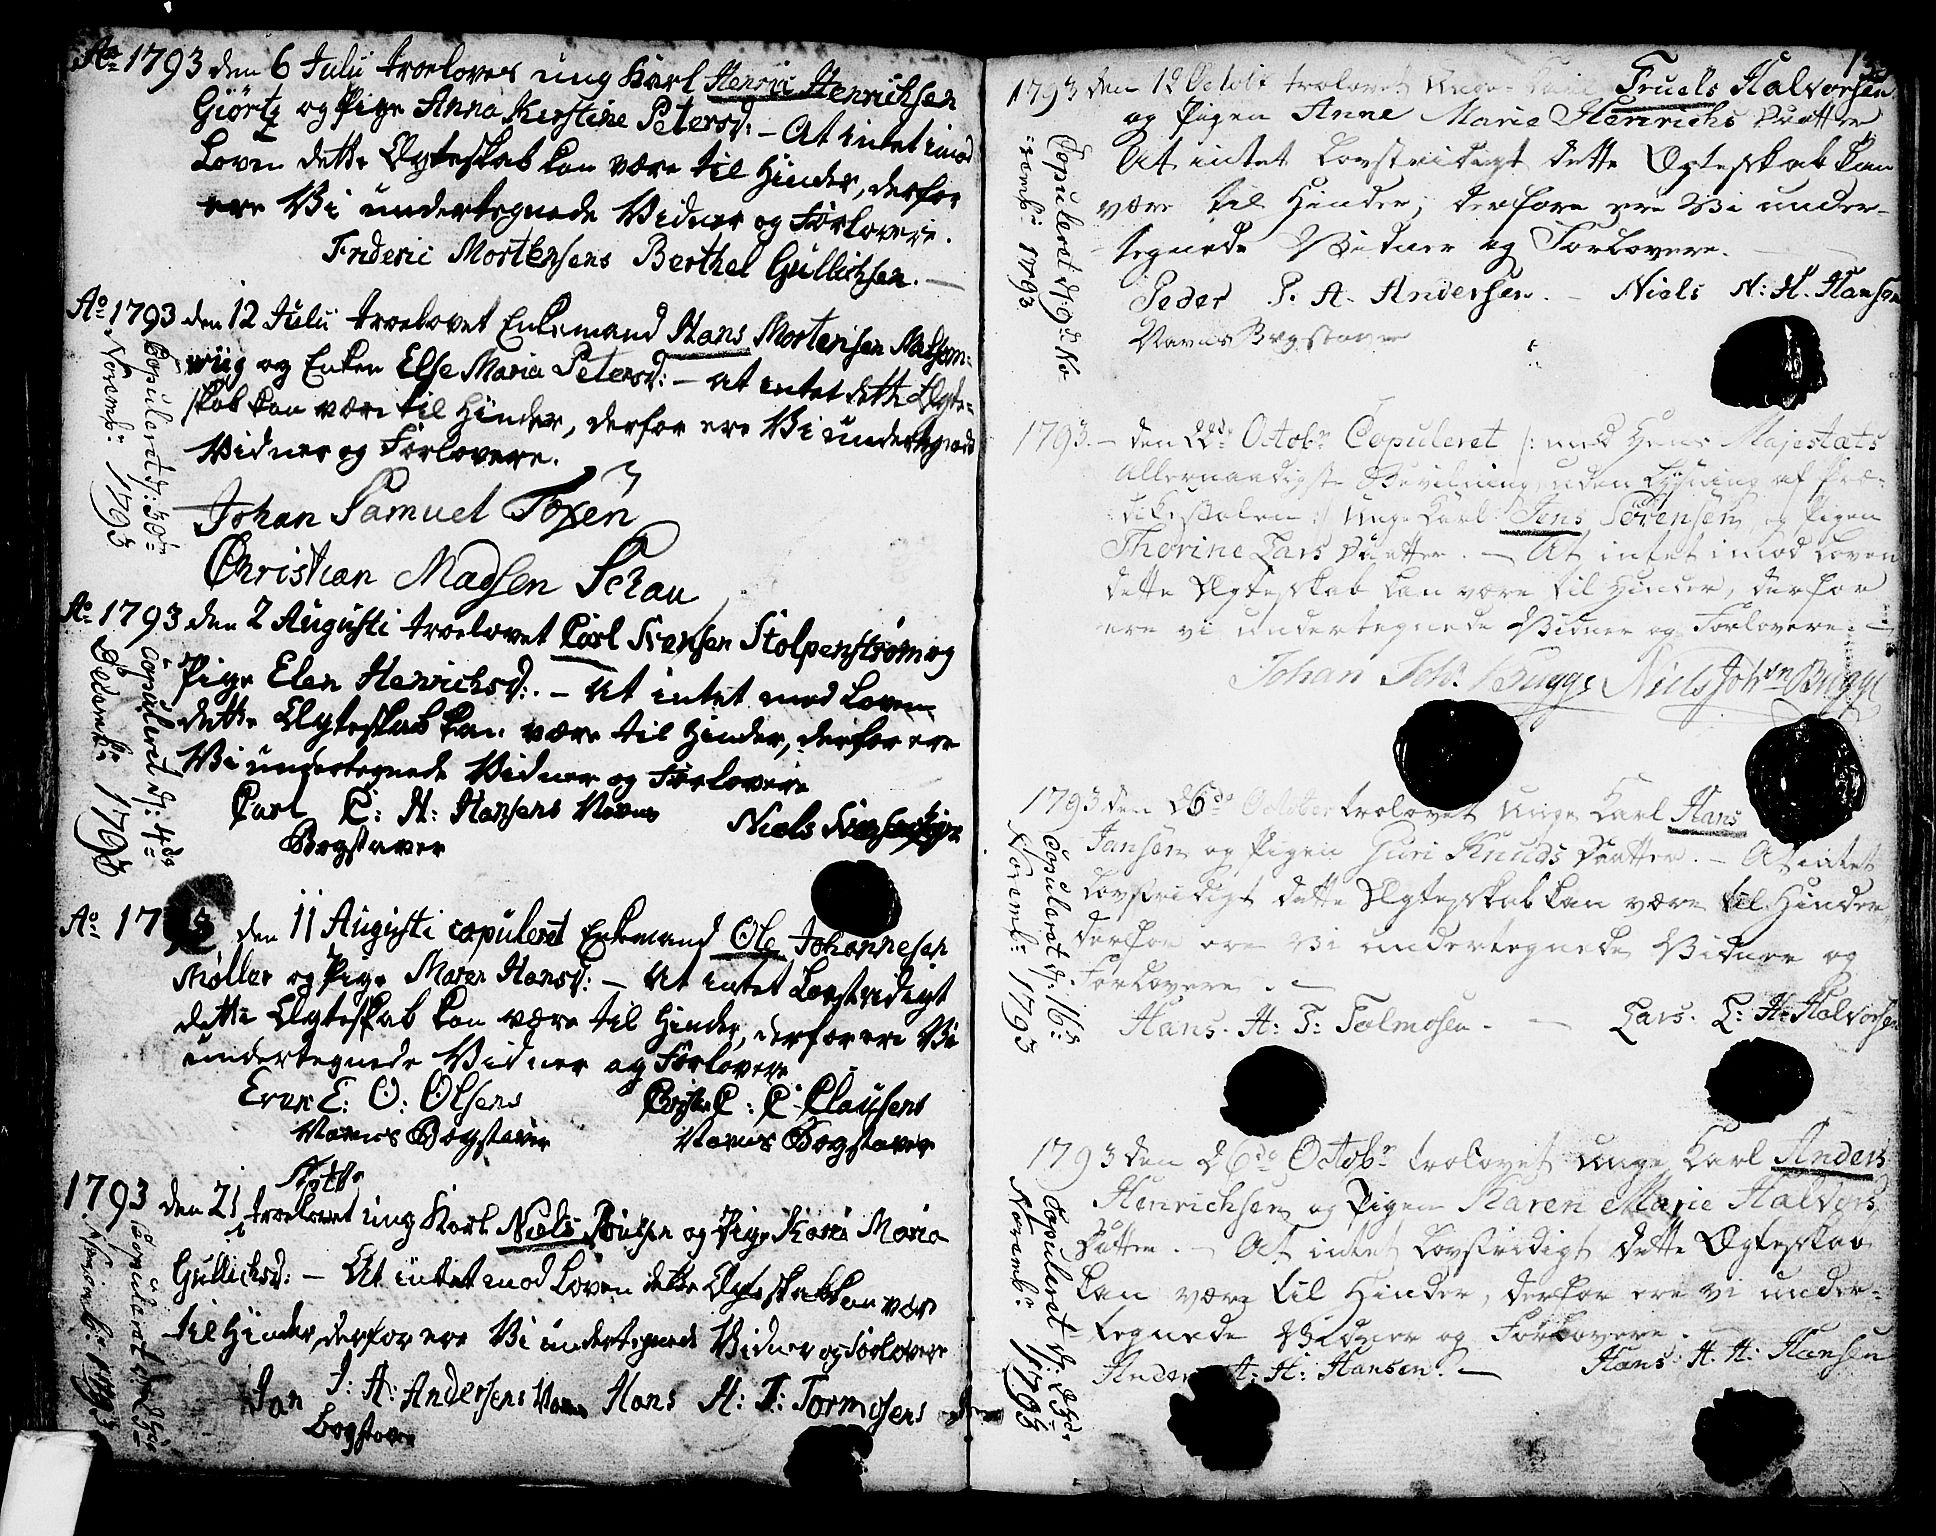 Ao 1793 den 6 Julii troeloves ung Karl Henric Henrichsen
Giörtz og Pige Anna Kirstine Petersd: – At intet imod
Loven dette Ægteskab kan være til Hinder, derfor
ere Vi undertegnede Vidner og Forlovere.
Frideric Mortensens Berthel Gullichsen. –
Ao 1793 den 12 Julii troelovet Enkemand Hans Mortensen
wiig og Enken Else Maria Petersd: – at intet dette Ægte-
skab kan være til Hinder, derfor ere Vi undertegnede
Vidner og Forlovere.
Copuleret d: 30te
Novemb: 1793
Johan Samuel Foxen
Christian Madsen Schau
Ao 1793 den 2 Augusti troelovet Carl Svensen Stolpenstrøm og
Pige Elen Henrichsd: – At intet mod Loven
dette Ægteskab kan være til Hinder, derfor ere
Vi undertegnede Vidner og Forlovere
Copuleret d: 4de
Decemb: 1793
Carl C: H: Hansens Navns
Bogstaver
Niels
Ao 1793 den 11 Augusti copuleret Enkemand Ole Johannesen
Møller og Pige Maren Hansd: – At intet Lovstridigt
dette Ægteskab kan være til Hinder, derfor ere Vi
undertegnede Vidner og Forlovere
Even E: O: Olsens
Navns Bogstaver
C: C: Clausens
Navns Bogstaver
1793 den 21 troelovet ung Karl Niels og Pige Karen Maria
Gullichsd: – At intet mod Loven dette Ægteskab kan være
til Hinder, derfor ere Vi undertegnede Vidner og Forlovere
Copuleret
Novemb: 1793
Jan J: A: Andersens Navns Hans H: T: Tormosens
Bogstaver
1793 den 12 Octobr trolovet Unge Karl Truels Halvorsen
og Pigen Anne Marie Henrichs Daatter
At intet Lovstridigt dette Ægteskab kan
være til Hinder, derfore ere Vi under-
tegnede Vidner og Forlovere.
Copuleret d: 9de No-
vemb: 1793
Peder P. A. Andersen. – Niels N: H. Hansen
Navns Bogstaver
1793. – den 22de Octobr Copuleret /: med Hans Majestæts
Allernaadigste Bevilning uden Lysning af Præ-
dikestolen :/ Unge Karl Jens Sørensen, og Pigen
Thorine Lars Daatter. – At intet imod Loven
dette Ægteskab kan være til Hinder, derfor
ere vi undertegnede Vidner og Forlovere. –
Johan Johs Bugge Niels Johsn Bugge
1793 den 26de October trolovet Unge Karl Hans
Jansen og Pigen Guri Knuds Daatter. – At intet
Lovstridigt dette Ægteskab kan være til Hinder
derfor ere Vi undertegnede Vidner og
Forlovere. –
Copuleret d: 16:
Novemb: 1793
Hans. H: T: Tolmosen. – Lars. L: H: Halvorsen
1793 den 26de Octobr trolovet unge Karl Anders
Henrichsen og Pigen Karen Marie Halvors
Datter. – At intet Lovstridigt dette Ægteskab
kan være til Hinder, derfor ere vi under-
tegnede Vidner og Forlovere. –
Copuleret d: 23de
Novemb: 1793
Anders A: H: Hansen. – Hans H. H: Hansen